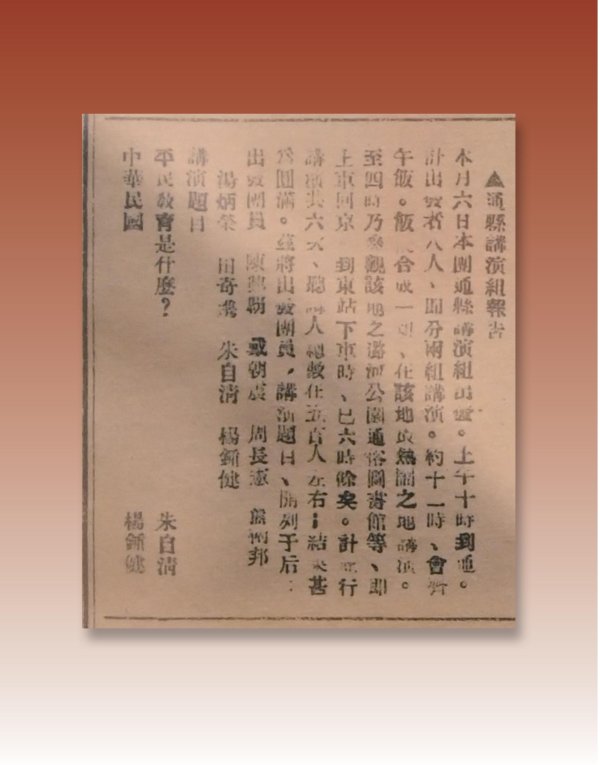 ▲通縣講演組報告
本月六日本團通縣講演組出發。上午十時到通。
計出發者八人、即分兩組講演。約十一時、會齊
午飯。飯 合成一組、在該地最熱鬧之地講演。
至四時乃參觀該地之潞河公園通俗圖書館等、即
上車回京 到東站下車時、已六時餘矣。計 行
講演共六次、聽講人總數在五百人左右；結果甚
為圓滿。茲將出發團員，講演題目、開列于后：
出發團員 陳 戴朝震 周長憲 邦
湯炳榮 田奇 朱自清 楊鍾健
講演題目
平民教育是什麼？ 朱自清
中華民國 楊鍾健